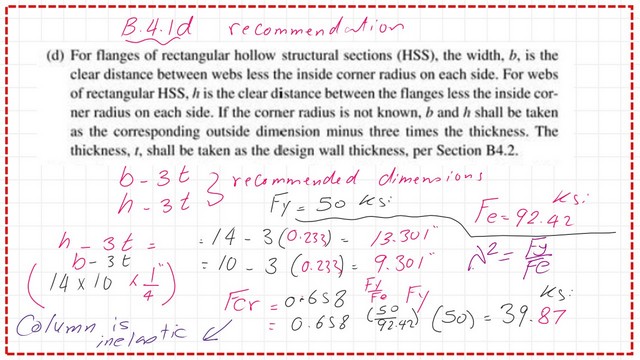 B.4.1d recommendation
(d) For flanges of rectangular hollow structural sections (HSS), the width, b, is the
clear distance between webs less the inside corner radius on each side. For webs
of rectangular HSS, h is the clear distance between the flanges less the inside cor-
ner radius on each side. If the corner radius is not known, b and h shall be taken
as the corresponding outside dimension minus three times the thickness. The
thickness, t, shall be taken as the design wall thickness, per Section B4.2.
b - 3t
h - 3t } recommended dimensions
Fy = 50 Ksi
Fe = 92.42 Ksi
h - 3t = = 14 - 3 (0.233) = 13.301"
b - 3t = 10 - 3 (0.233) = 9.301"
λ² = Fy/Fe
(14 x 10 x 1/4")
Fcr = 0.658 Fy/Fe Fy
= 0.658 (50/92.42) (50) = 39.87 Ksi
Column is inelastic ↙